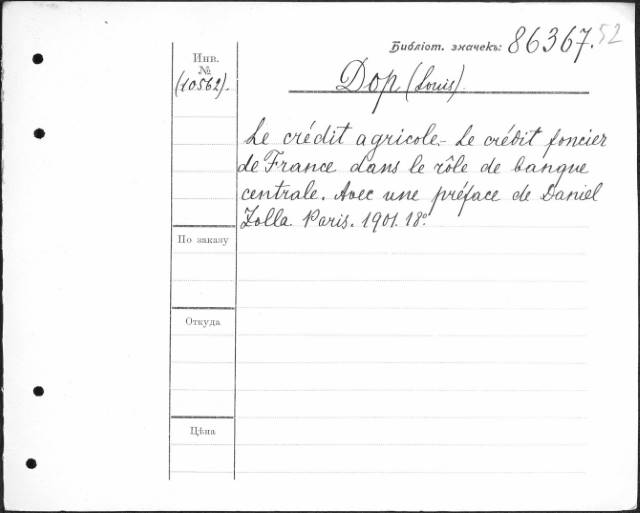 Библіот. значекъ: 86367.52
Инв.
№
(10562).
Дор (Louis).
Le crédit agricole.- Le crédit foncier
de France dans le rôle de banque
centrale. Avec une préface de Daniel
Zolla. Paris. 1901. 18º.
По заказу
Откуда
Цѣна